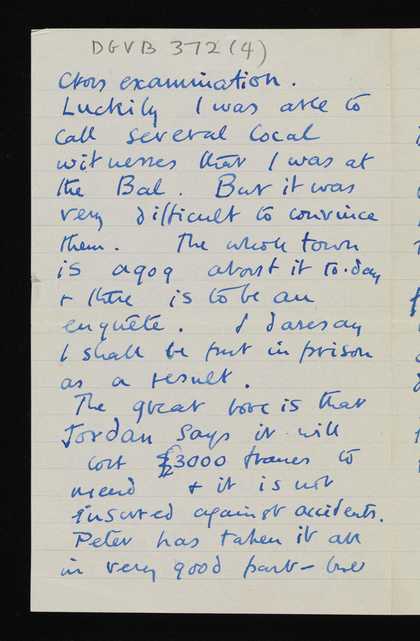 DGVB 372 (4)
Cross examination.
Luckily I was able to
call several local
witnesses that I was at
the Bal. But it was
very difficult to convince
them. The whole town
is agog about it to-day
+ there is to be an
enquête. I daresay
I shall be put in prison
as a result.
The great bore is that
Jordan says it will
cost £3000 francs to
mend + it is not
insured against accidents.
Peter has taken it all
in very good part - but